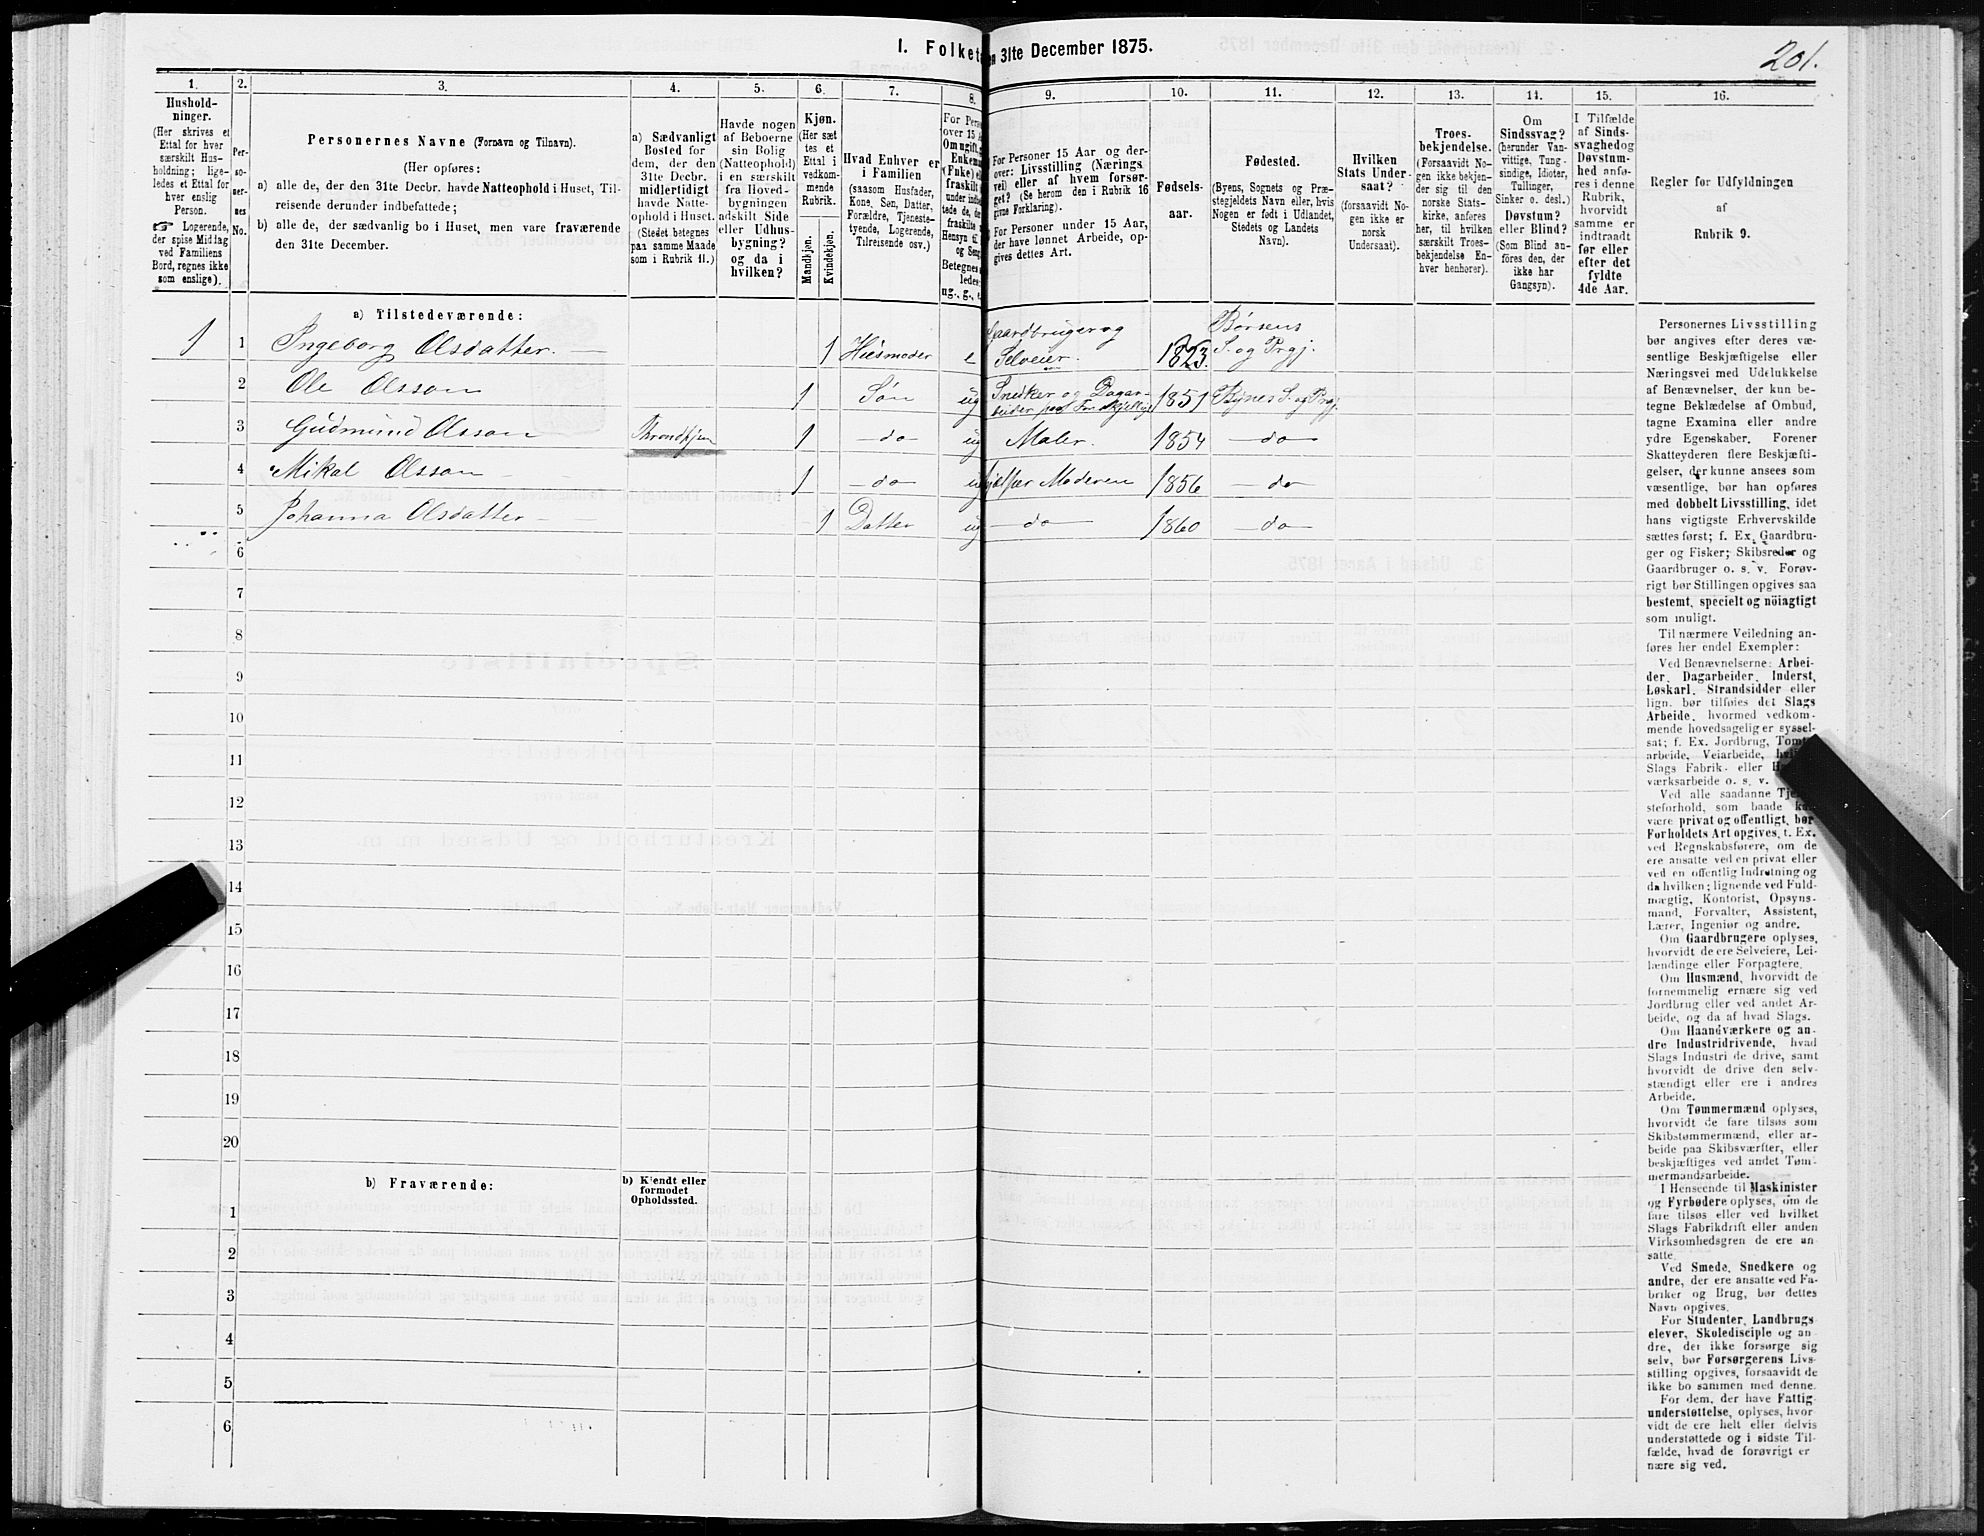 201.
I. Folket
en 31te December 1875.
1.
2.
3.
4.
5.
6.
7.
8.
9.
10.
11.
12.
13.
14.
15.
16.
Hushold-
ninger.
(Her skrives et
Ettal for hver
særskilt Hus-
holdning; lige-
ledes et Ettal for
hver enslig
Person.
☞ Logerende,
der spise Middag
ved Familiens
Bord, regnes ikke
som enslige).
Per-
so-
ner-
nes
No.
Personernes Navne (Fornavn og Tilnavn).
(Her opføres:
a) alle de, der den 31te Decbr. havde Natteophold i Huset, Til-
reisende derunder indbefattede;
b) alle de, der sædvanlig bo i Huset, men vare fraværende
den 31te December.
a) Sædvanligt
Bosted for
dem, der den
31te Decbr.
midlertidigt
havde Natte-
ophold i Huset.
(Stedet betegnes
paa samme Maade
som i Rubrik 11.)
Havde nogen
af Beboerne
sin Bolig
(Natteophold)
i en særskilt
fra Hoved-
bygningen
adskilt Side
eller Udhus-
bygning?
og da i
hvilken?
Kjøn.
(Her sæt
tes et
Ettal i
vedkom-
mende
Rubrik.
Mandkjøn.
Kvindekjøn.
Hvad Enhver er
i Familien
(saasom Husfader,
Kone, Søn, Datter,
Forældre, Tjeneste-
tyende, Logerende,
Tilreisende osv.)
For Pers
over 15 A
Om ugift, g
Enkem
(Enke) el
fraskilt
under indbe
tede de, de
fraskilte
Hensyn til
og Seng
Betegnes
ledes
ug., g., e
For Personer 15 Aar og der-
over: Livsstilling (Nærings
vei) eller af hvem forsør-
get? (Se herom den i Rubrik 16
givne Forklaring).
For Personer under 15 Aar,
der have lønnet Arbeide, op-
gives dettes Art.
Fødsels-
aar.
Fødested.
(Byens, Sognets og Præ-
stegjeldets Navn eller, hvis
Nogen er født i Udlandet,
Stedets og Landets
Navn).
Hvilken
Stats Under-
saat?
(forsaavidt No-
gen ikke er
norsk
Undersaat).
Troes-
bekjendelse.
(Forsaavidt No-
gen ikke bekjen-
der sig til den
norske Stats-
kirke, anføres
her, til hvilken
særskilt Troes-
bekjendelse En-
hver henhører).
Om
Sindssvag?
(herunder Van-
vittige, Tung-
sindige, Idioter,
Tullinger,
Sinker o. desl.)
Døvstum?
eller Blind?
(Som Blind an-
føres den, der
ikke har
Gangsyn).
I Tilfælde
af Sinds-
svaghed og
Døvstum-
hed anfø-
res i denne
Rubrik,
hvorvidt
samme er
indtraadt
før eller
efter det
fyldte
4de Aar.
Regler for Udfyldningen
af
Rubrik 9.
a) Tilstedeværende:
1 1 Ingeborg Olsdatter. 1 Husmoder e Gaardbruger og Selveier. 1823. Børsens S. og Prgj.
2 Ole Olsson 1 Søn ug Snedker og Dagar-
beider 1851 Bynes S. og Prgj.
3 Gudmund Olsson Throndhjem 1 do ug Maler. 1854 do
4 Mikal Olsson 1 do Moderen 1856 do
5 Johanna Olsdatter 1 Datter ug do 1860 do
6
7
8
9
10
11
12
13
14
15
16
17
18
19
20
b) Fraværende:
b) Kjendt eller
formodet
Opholdssted.
1
2
3
4
5
6
Personernes Livsstilling
bør angives efter deres væ-
sentlige Beskjæftigelse eller
Næringsvei med Udelukkelse
af Benævnelser, der kun be-
tegne Beklædelse af Ombud,
tagne Examina eller andre
ydre Egenskaber. Forener
Skatteyderen flere Beskjæfti-
gelser, der kunne ansees som
væsentlige, bør han opføres
med dobbelt Livsstilling, idet
hans vigtigste Erhvervskilde
sættes først; f. Ex. Gaardbru-
ger og Fisker; Skibsreder og
Gaardbruger o. s. v. Forøv-
rigt bør Stillingen opgives saa
bestemt, specielt og nöiagtigt
som muligt.
Til nærmere Veiledning an-
føres her endel Exempler:
Ved Benævnelserne: Arbei-
der, Dagarbeider, Inderst,
Løskarl, Strandsidder eller
lign. bør tilføies det Slags
Arbeide, hvormed vedkom-
mende hovedsagelig er syssel-
sat; f. Ex. Jordbrug, Tomt
arbeide, Veiarbeide,
Slags Fabrik- eller
værksarbeide o. s. v.
Ved alle saadanne Tje
steforhold, som baade
være privat og offentligt, bør
Forholdets Art opgives, t. Ex.
ved Regnskabsførere, om de
ere ansatte ved en privat eller
ved en offentlig Indretning og
da hvilken; lignende ved Fuld-
mægtig, Kontorist, Opsyns-
mand, Forvalter, Assistent,
Lærer, Ingeniør og andre.
Om Gaardbrugere oplyses,
hvorvidt de ere Selveiere, Lei-
lændinge eller Forpagtere.
Om Husmænd, hvorvidt de
fornemmelig ernære sig ved
Jordbrug eller ved andet Ar-
beide, og da af hvad Slags.
Om Haandværkere og an-
dre Industridrivende, hvad
Slags Industri de drive, samt
hvorvidt de drive den selv-
stændigt eller ere i andres
Arbeide.
Om Tømmermænd oplyses,
hvorvidt de fare tilsøs som
Skibstømmermænd, eller ar-
beide paa Skibsværfter, eller
beskjæftiges ved andet Tøm-
mermandsarbeide.
I Henseende til Maskinister
og Fyrbødere oplyses, om de
fare tilsøs eller ved hvilket
Slags Fabrikdrift eller anden
Virksomhedsgren de ere an-
satte.
Ved Smede, Snedkere og
andre, der ere ansatte ved Fa-
briker og Brug, bør dettes
Navn opgives.
For Studenter, Landbrugs
elever, Skoledisciple og an-
dre, der ikke forsørge sig
selv, bør Forsørgerens Livs-
stilling opgives, forsaavidt de
ikke bo sammen med denne.
For dem, der have Fattig-
understøttelse, oplyses, hvor
vidt de ere helt eller delvis
understøttede og i sidste Til-
fælde, hvad de forøvrigt er
nære sig ved.